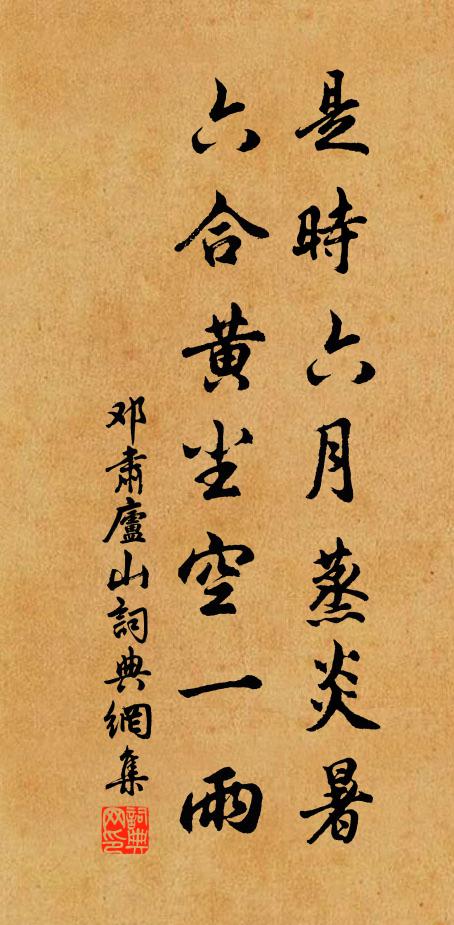 是時六月蒸炎暑
六合黄尘空一雨
邓肅廬山詞典網集
詞典网印